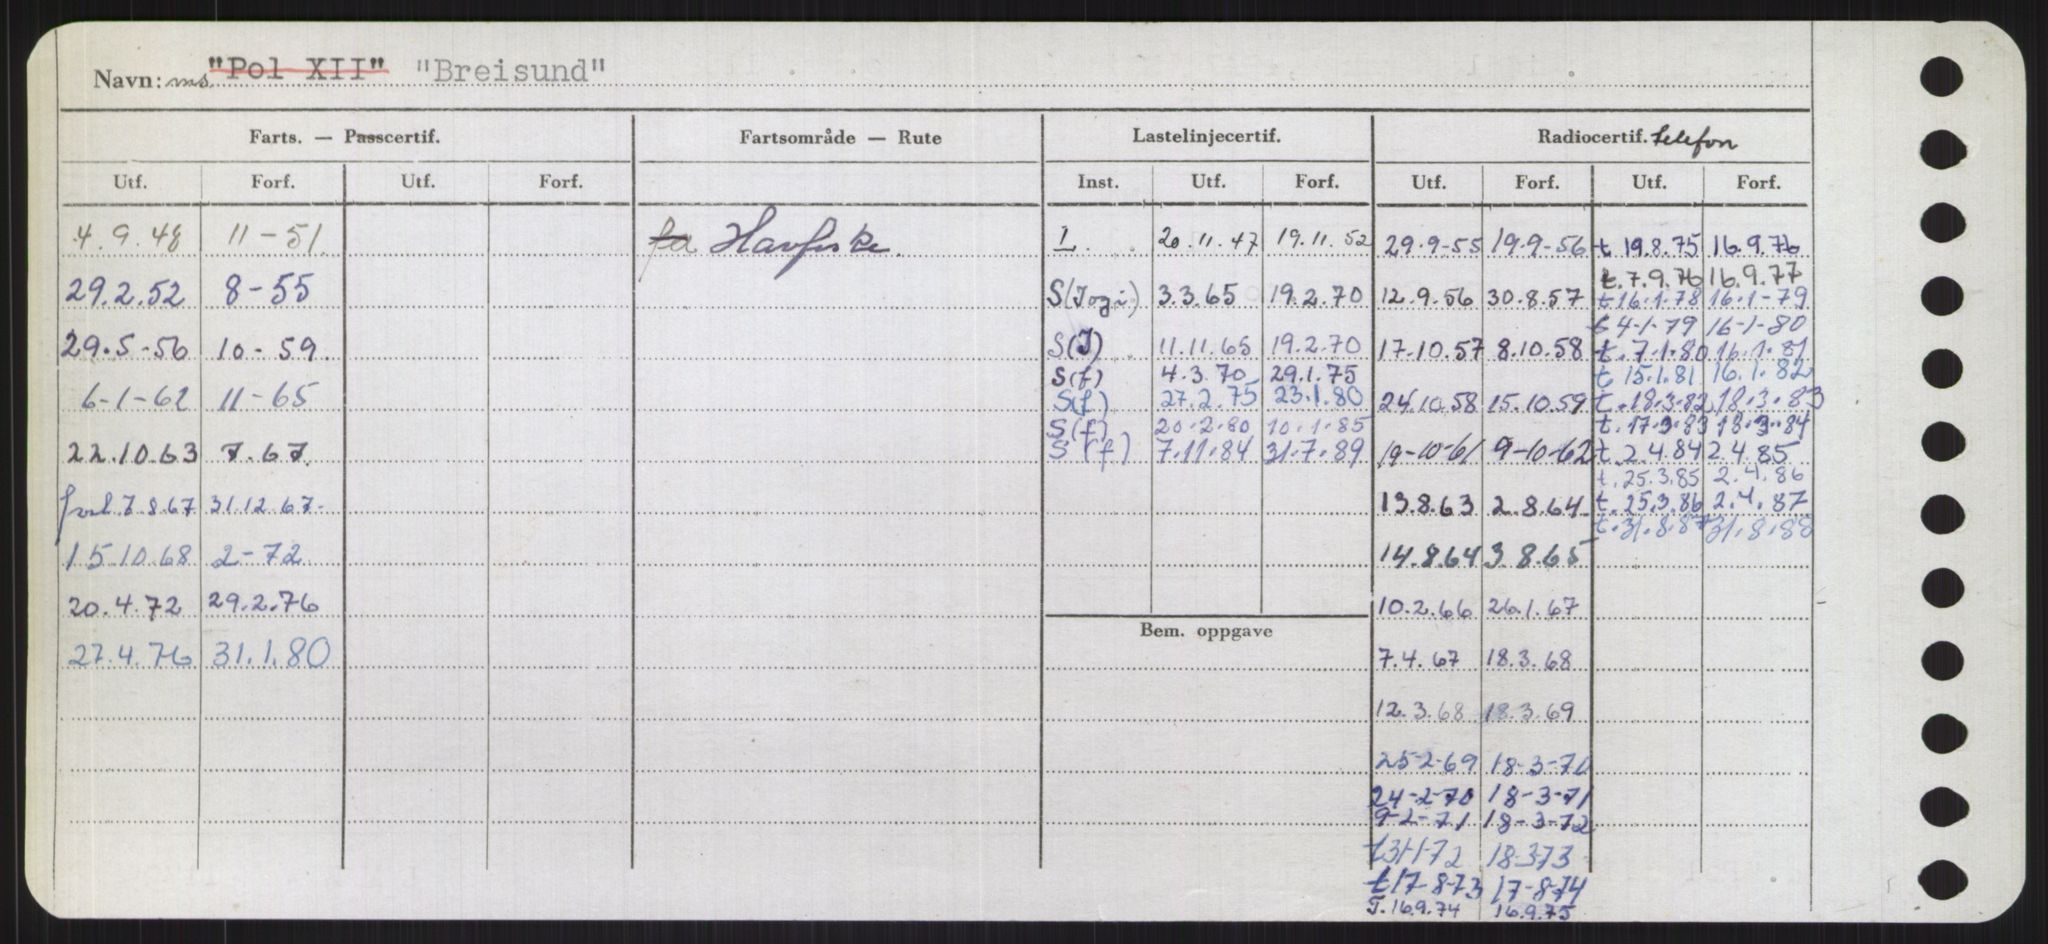 Navn: ms "Pol XII" "Breisund"
Farts. — Passcertif. Fartsområde — Rute Lastelinjecertif. Radiocertif. telefon
Utf. Forf. Utf. Forf. Inst. Utf. Forf. Utf. Forf. Utf. Forf.
4.9.48 11-51 Havfiske. I. 20.11.47 19.11.52 29.9-55 19.9-56 t 19.8.75 16.9.76
t.7.9.76 16.9.77
29.2.52 8-55 S(J og i) 3.3.65 19.2.70 12.9.56 30.8.57 t 16.1.78 16.1-79
t 4-1-79 16-1-80
29.5-56 10-59. S(J) 11.11.65 19.2.70 17.10.57 8.10.58 t.7.1.80 16.1.81
S(f) 4.3.70 29.1.75 t 15.1.81 16.1.82
6-1-62 11-65 S(f) 27.2.75 23.1.80 24.10.58 15.10.59 t.18.3.82 18.3.83
S(f) 20.2.80 10.1.85 t.17.3.83 18.3.84
22.10.63 7.67. S(f) 7.11.84 31.7.89 19-10-61 9-10-62 t.2.4.84 2.4.85
t.25.3.85 2.4.86
7.8.67 31.12.67- 13.8.63 2.8.64 t.25.3.86 2.4.87
t.31.8.87 31.8.88
15.10.68 2-72 14.8.64 3.8.65
20.4.72 29.2.76 10.2.66 26.1.67
Bem. oppgave
27.4.76 31.1.80 7.4.67 18.3.68
12.3.68 18.3.69
25-2-69 18-3-70
24-2-70 18-3-71
9-2-71 18-3-72
t31-1-72 18-3-73
t17-8-73 17-8-74
T.16.9.74 16.9.75